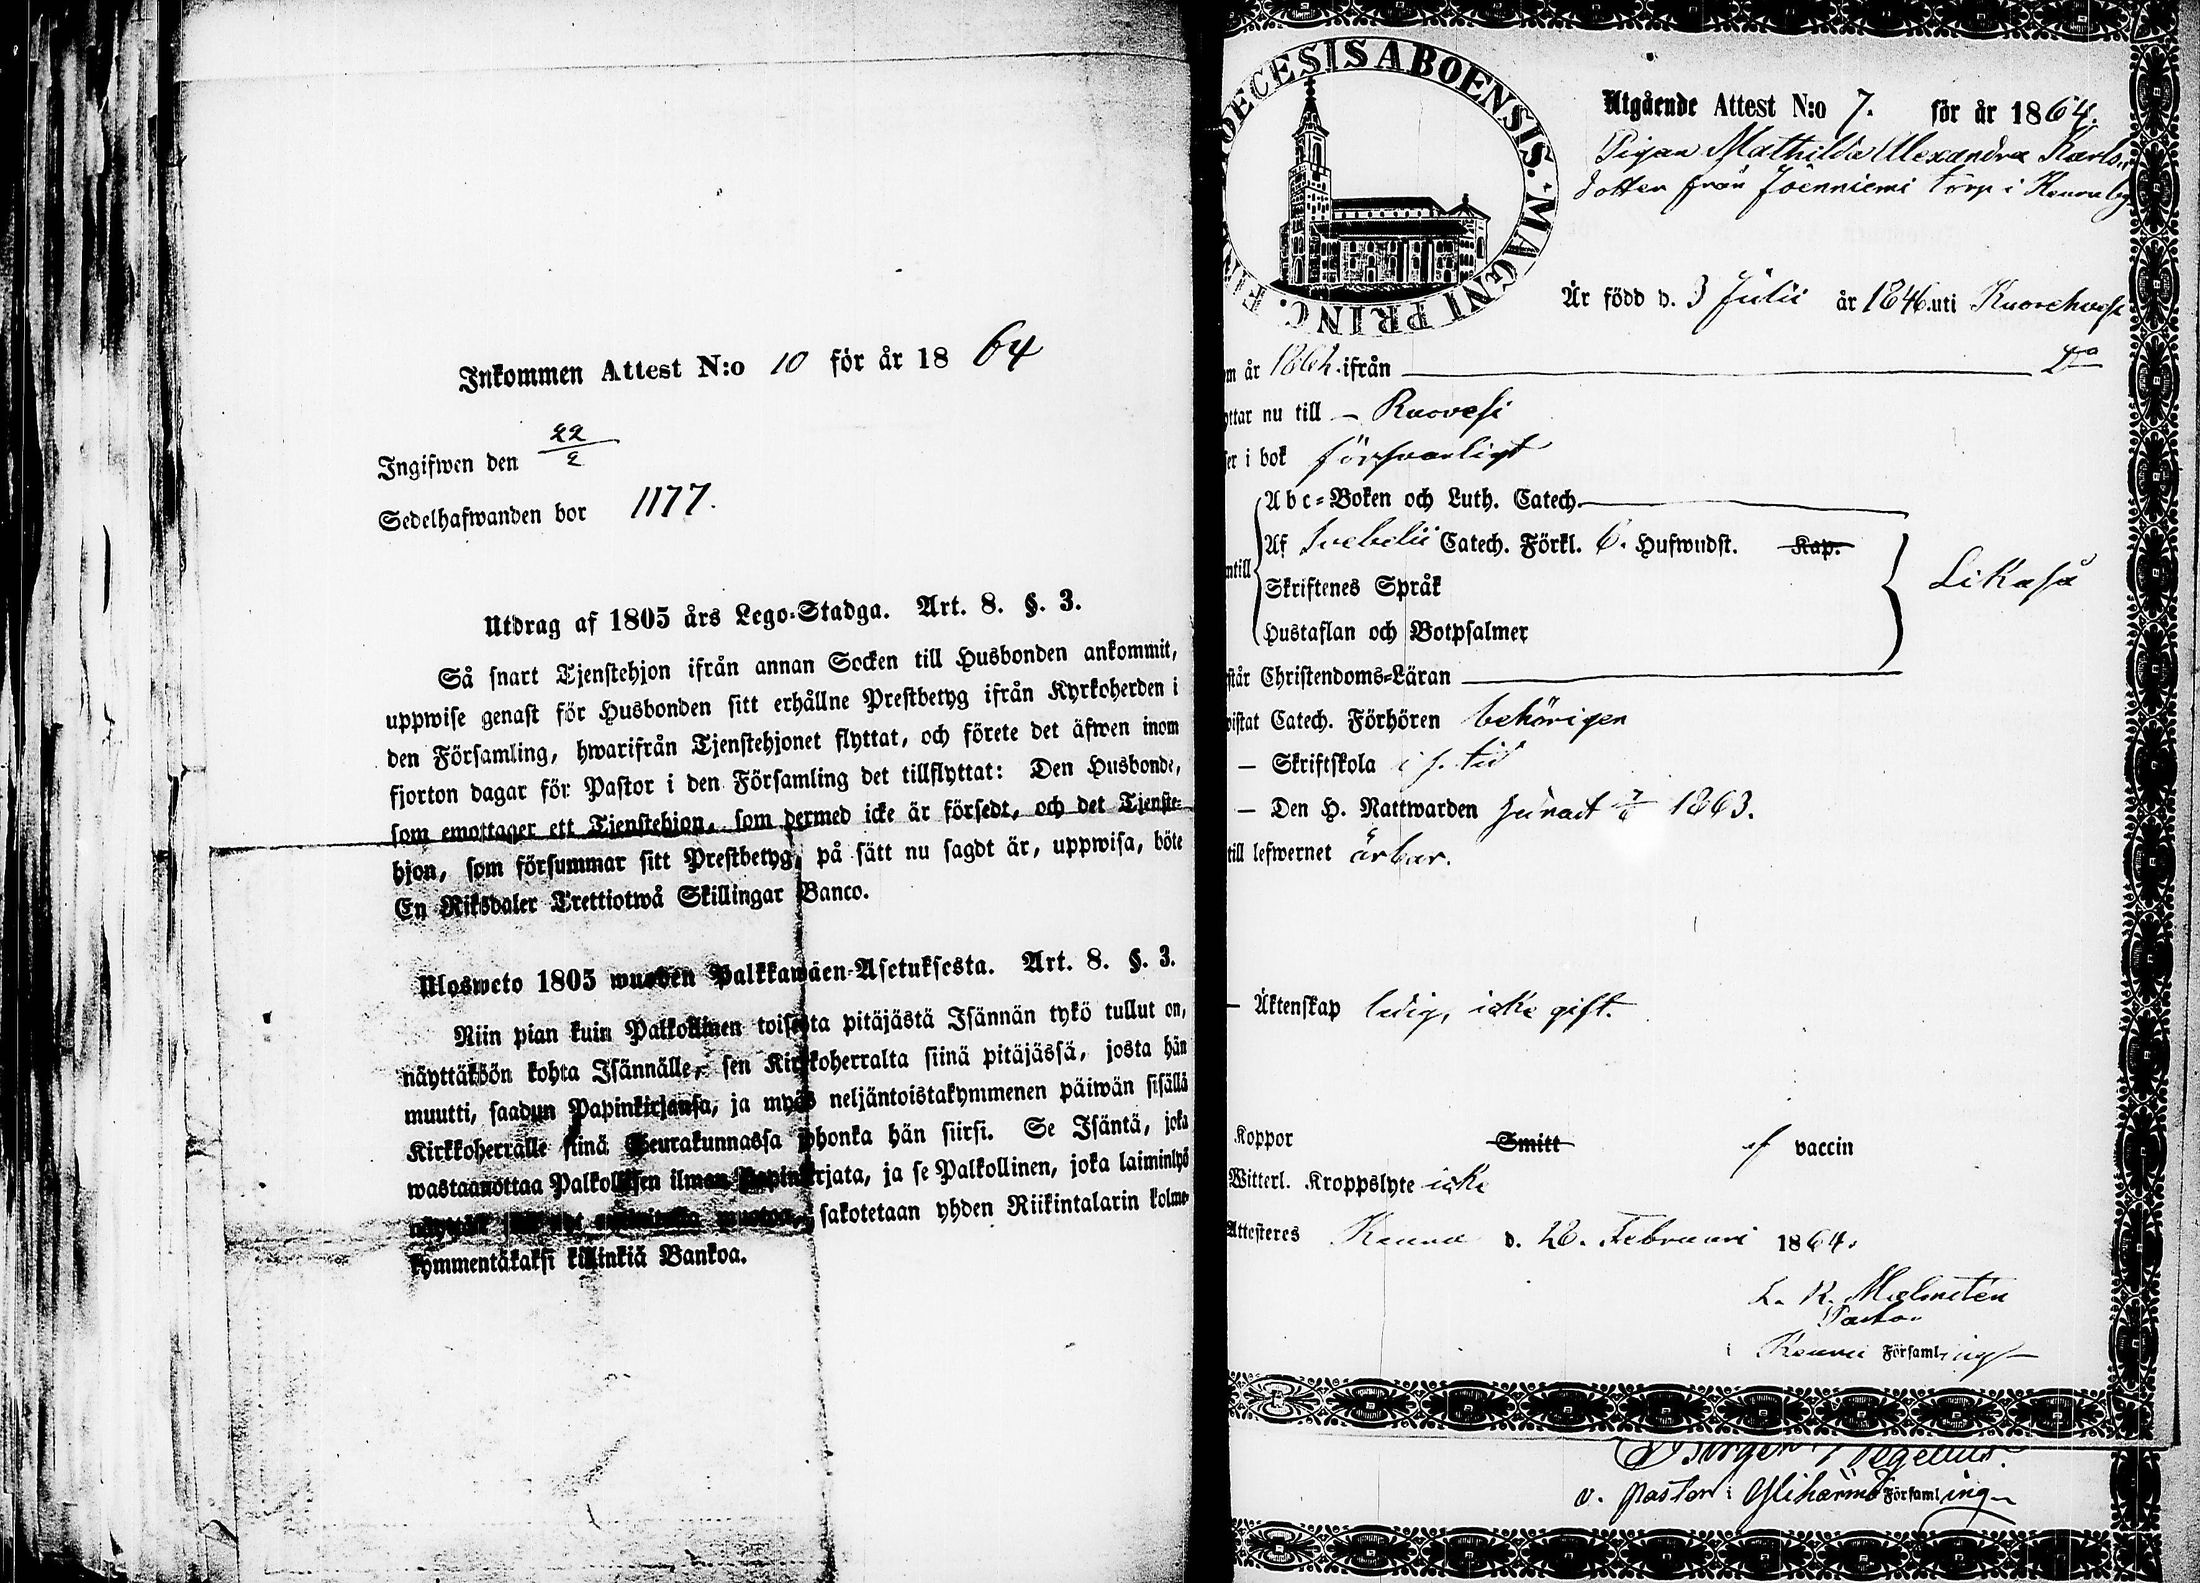 Inkommen Attest N:o 10 för år 18 64
Ingifwen den 22/2
Sedelhafwanden bor 1177.
Utdrag af 1805 års Lego-Stadga. Art. 8. §. 3.
Så snart Tjenstehjon ifrån annan Socken till Husbonden ankommit,
uppwise genast för Husbonden sitt erhållne Prestbetyg ifrån Kyrkoherden i
den Församling, hwarifrån Tjenstehjonet flyttat, och förete det äfwen inom
fjorton dagar för Pastor i den Församling det tillflyttat: Den Husbonde,
som emottager ett Tjenstehjon, som dermed icke är försedt, och det Tjenste-
hjon, som försummar sitt Prestbetyg, på sätt nu sagdt är, uppwisa, böte
En Riksdaler Trettiotwå Skillingar Banco.
Ulosweto 1805 wuoden Palkkawäen-Asetuksesta. Art. 8. §. 3.
Niin pian kuin Palkollinen toisesta pitäjästä Isännän tykö tullut on,
näyttäköön kohta Isännälle, sen Kirkkoherralta siinä pitäjässä, josta hän
muutti, saadun Papinkirjansa, ja myös neljäntoistakymmenen päiwän sisällä
Kirkkoherralle siinä Seurakunnassa johonka hän siirsi. Se Isäntä, joka
wastaanottaa Palkollisen ilman Papinkirjata, ja se Palkollinen, joka laiminlyö
sakotetaan yhden Riikintalarin kolme-
kymmentäkaksi killinkiä Bankoa.
DIOECESIS ABOENSIS. MAGNI PRINC.
Utgående Attest N:o 7. för år 1864.
Pigan Mathilda Alexandra Karls-
dotter från Joenniemi torp i Keuru by
Är född d. 3 Julii år 1846 uti Kuorehvesi
m år 1864 ifrån — Do
yttar nu till — Ruovesi
ser i bok försvarligt
Abc-Boken och Luth. Catech.
Af Svebelii Catech. Förkl. 6. Hufwudst. Kap.
ntill Skriftenes Språk Likaså
Hustaflan och Botpsalmer
står Christendoms-Läran
wistat Catech. Förhören behörigen
— Skriftskola i s. tid
— Den H. Nattwarden senast 1863.
till lefwernet ärbar.
— Äktenskap ledig, icke gift.
Koppor Smitt af vaccin
Witterl. Kroppslyte icke
Attesteres Keuru d. 20. Februari 1864.
L. K. Malmstén
Pastor
i Keuru Församling
v. Pastor i Ylihärmä Församling